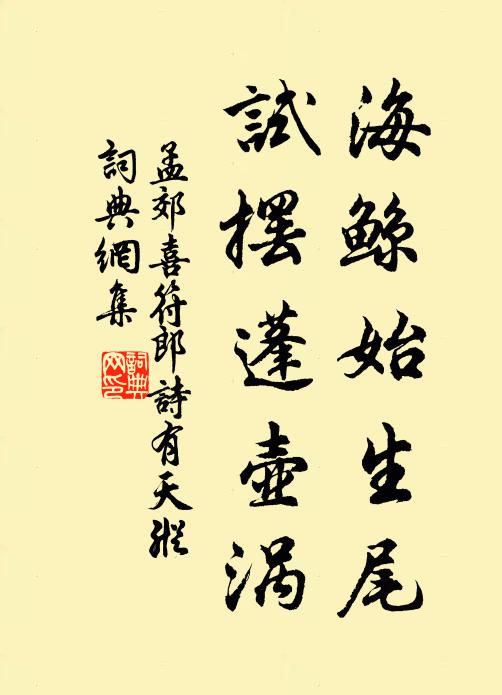 海鲸始生尾
試擺蓬壺涡
孟郊喜符郎詩有天縱
詞典網集
詞典网印